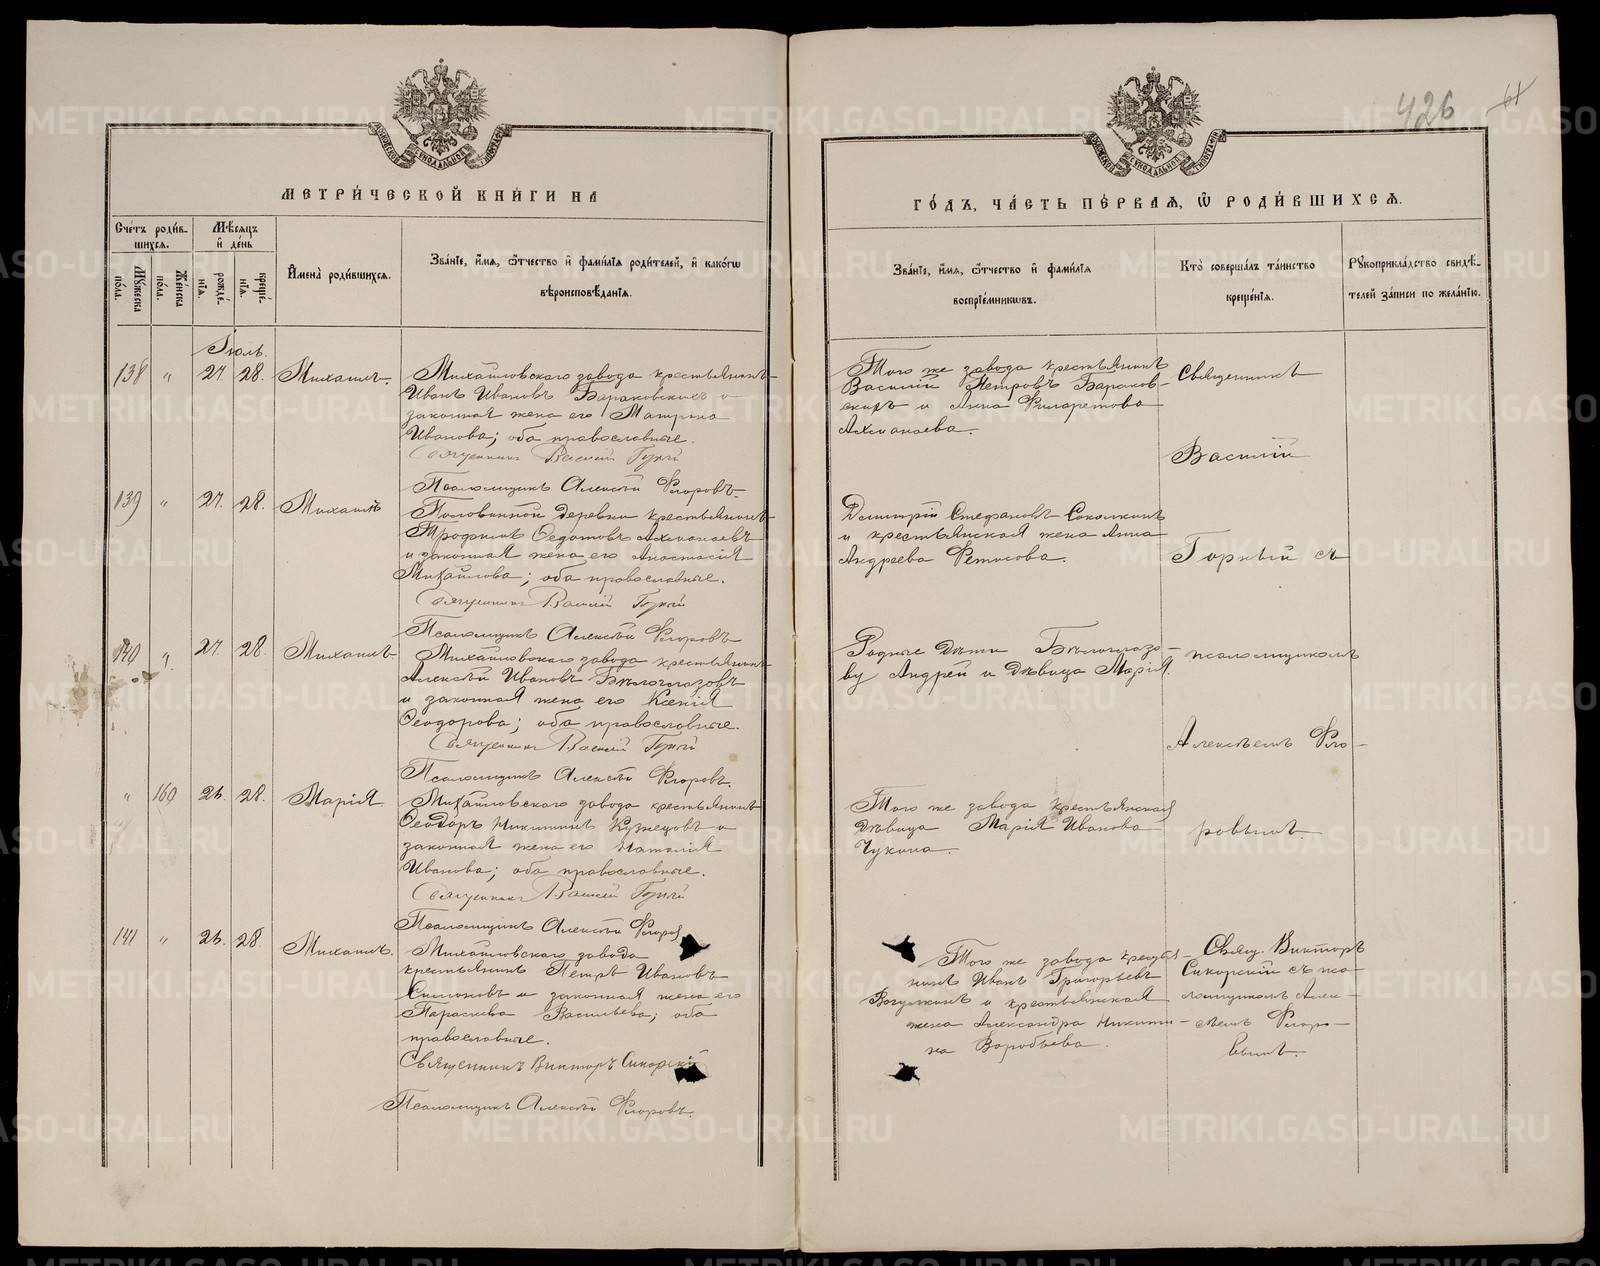 426
МЕТРИ́ЧЕСКОЙ КНИ́ГИ НА
ГО́ДЪ, ЧА́СТЬ ПЕ́РВАѦ, Ѽ РОДИ́ВШИХСѦ.
Сче́тъ роди́в-
шихсѧ.
Мѣ́сяцъ
и҆ де́нь
Му́жеска
по́ла.
Же́нска
по́ла.
рожде́-
нїѧ.
креще́-
нїѧ.
И҆мена̀ роди́вшихсѧ.
Зва́нїе, и҆́мѧ, ѻ҆́тчество и҆ фами́лїѧ роди́телей, и҆ како́гѡ
вѣроисповѣ́данїѧ.
Зва́нїе, и҆́мѧ, ѻ҆́тчество и҆ фами́лїѧ
воспрїе́мникѡвъ.
Кто̀ соверша́лъ та́инство
креще́нїѧ.
Рꙋкоприкла́дство свидѣ́-
телей за́писи по жела́нїю.
Іюль.
138 " 27. 28. Михаилъ.
Михайловскаго завода крестьянинъ
Иванъ Ивановъ Бараковскихъ и
законная жена его Матрона
Иванова; оба православные.
Священникъ Василій Горный
Псаломщикъ Алексѣй Флоровъ.
Того же завода крестьянинъ
Василій Петровъ Бараков-
скихъ и Анна Филаретова
Ахманаева.
Священникъ
Василій
139 " 27. 28. Михаилъ
Половинной деревни крестьянинъ
Трофимъ Ѳедотовъ Ахманаевъ
и законная жена его Анастасія
Михайлова; оба православные.
Священникъ Василій Горный
Псаломщикъ Алексѣй Флоровъ
Дмитрій Стефановъ Соколкинъ
и крестьянская жена Анна
Андреева
Горный съ
140 " 27. 28. Михаилъ.
Михайловскаго завода крестьянинъ
Алексѣй Ивановъ Бѣлоглазовъ
и законная жена его Ксенія
Ѳеодорова; оба православные.
Священникъ Василій Горный
Псаломщикъ Алексѣй Флоровъ.
Родные дѣти Бѣлоглазо-
ву Андрей и дѣвица Марія.
псаломщикомъ
Алексѣемъ Фло-
" 160 26. 28. Марія
Михайловскаго завода крестьянинъ
Ѳеодоръ Никитинъ Кузнецовъ и
законная жена его Наталія
Иванова; оба православные.
Священникъ Василій Горный
Псаломщикъ Алексѣй Флоров
Того же завода крестьянская
дѣвица Марія Иванова
Чукина.
ровымъ
141 " 26. 28. Михаилъ.
Михайловскаго завода
крестьянинъ Петръ Ивановъ
Симоновъ и законная жена его
Параскева Васильева; оба
православные.
Священникъ Викторъ Сикорскій
Псаломщикъ Алексѣй Флоровъ.
Того же завода крестья-
нинъ Иванъ Григорьевъ
Вогулкинъ и крестьянская
жена Александра Никити-
на Воробьева.
Свящ. Викторъ
Сикорскій съ пса-
ломщикомъ Алек-
сѣемъ Флоро-
вымъ.
METRIKI.GASO-URAL.RU